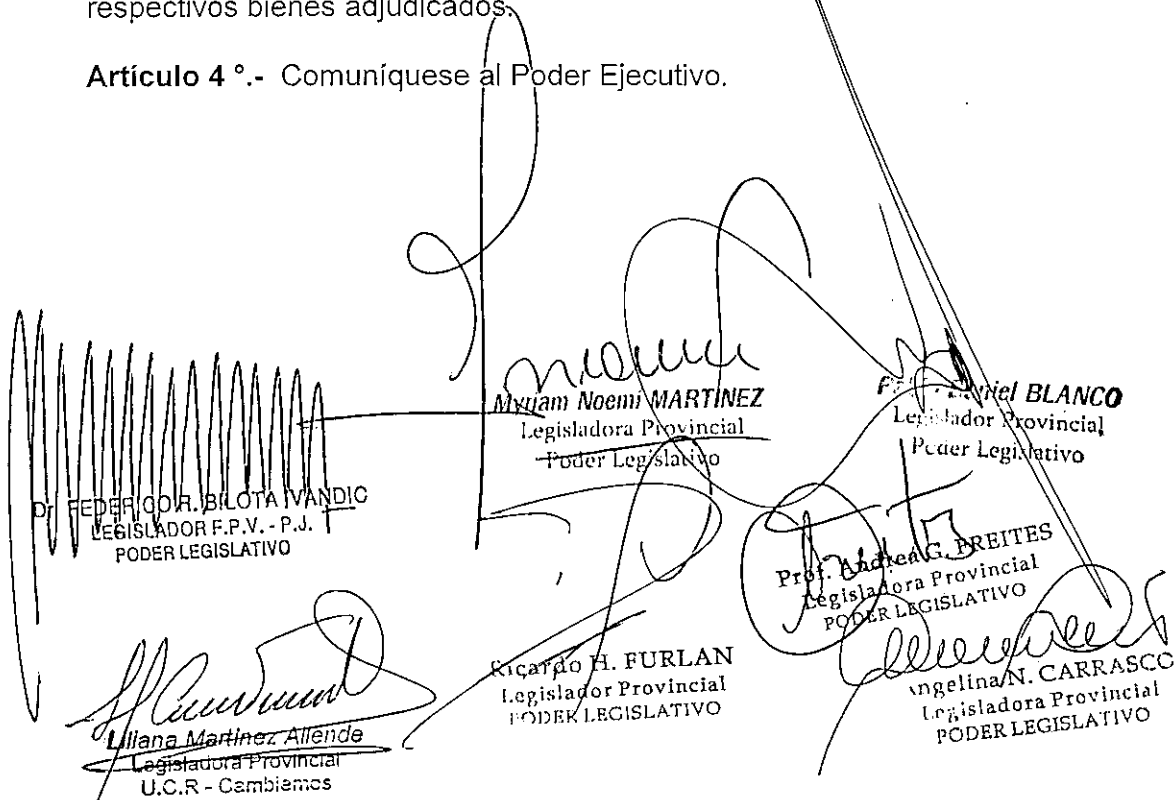 respectivos bienes adjudicados.
Artículo 4 °.- Comuníquese al Poder Ejecutivo.
Myriam Noemi MARTINEZ
Legisladora Provincial
Poder Legislativo
BLANCO
Legislador Provincial
Poder Legislativo
Dr. FEDERICO R. BILOTA IVANDIC
LEGISLADOR F.P.V. - P.J.
PODER LEGISLATIVO
Prof. Andrea G. FREITES
Legisladora Provincial
PODER LEGISLATIVO
Ricardo H. FURLAN
Legislador Provincial
PODER LEGISLATIVO
Angelina N. CARRASCO
Legisladora Provincial
PODER LEGISLATIVO
Liliana Martinez Allende
Legisladora Provincial
U.C.R - Cambiemos